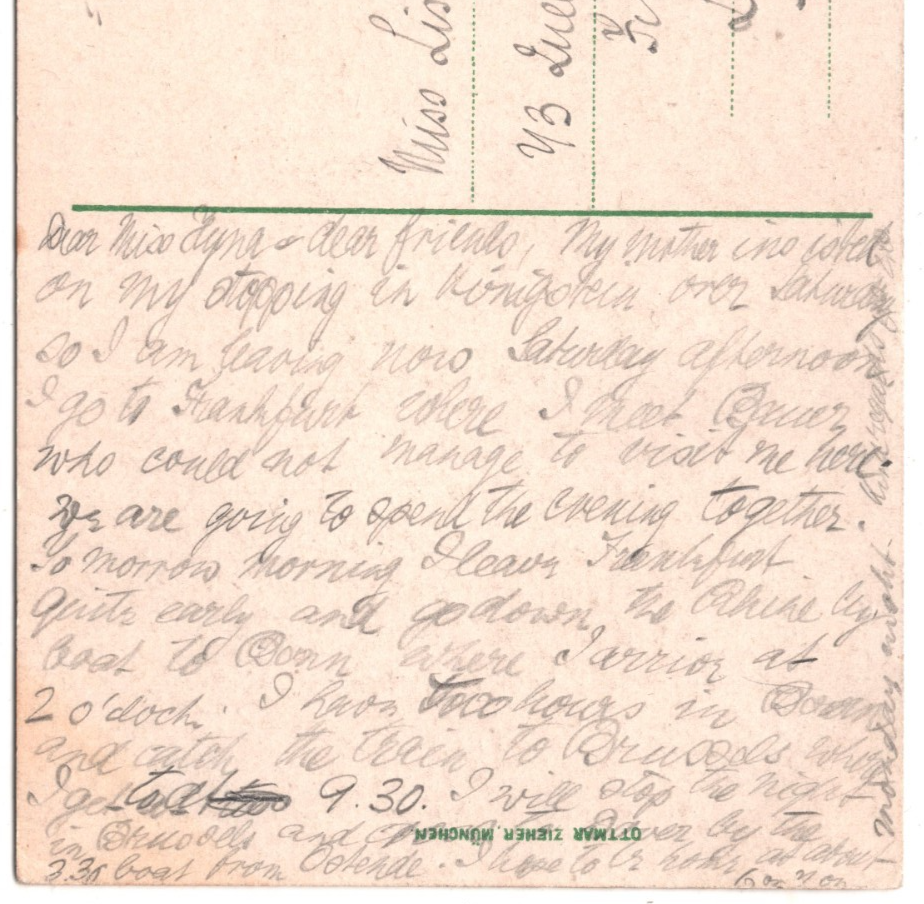 Miss
43
Dear Miss Lyna & dear friends, My mother insisted
on my stopping in Königstein over Saturday
so I am leaving now Saturday afternoon
I go to Frankfurt where I meet Bauer
who could not manage to visit me here.
We are going to spend the evening together.
To morrow morning I leave Frankfurt
quite early and go down the Rhine by
boat to Bonn where I arrive at
2 o'clock. I have two hours in Bonn
and catch the train to Brussels where
I get to at 9.30. I will stop the night
in Brussels and to Dover by the
3.30 boat from Ostende. I hope to be home at about
6 or 7 on
Monday night.
OTTMAR ZIEHER, MÜNCHEN